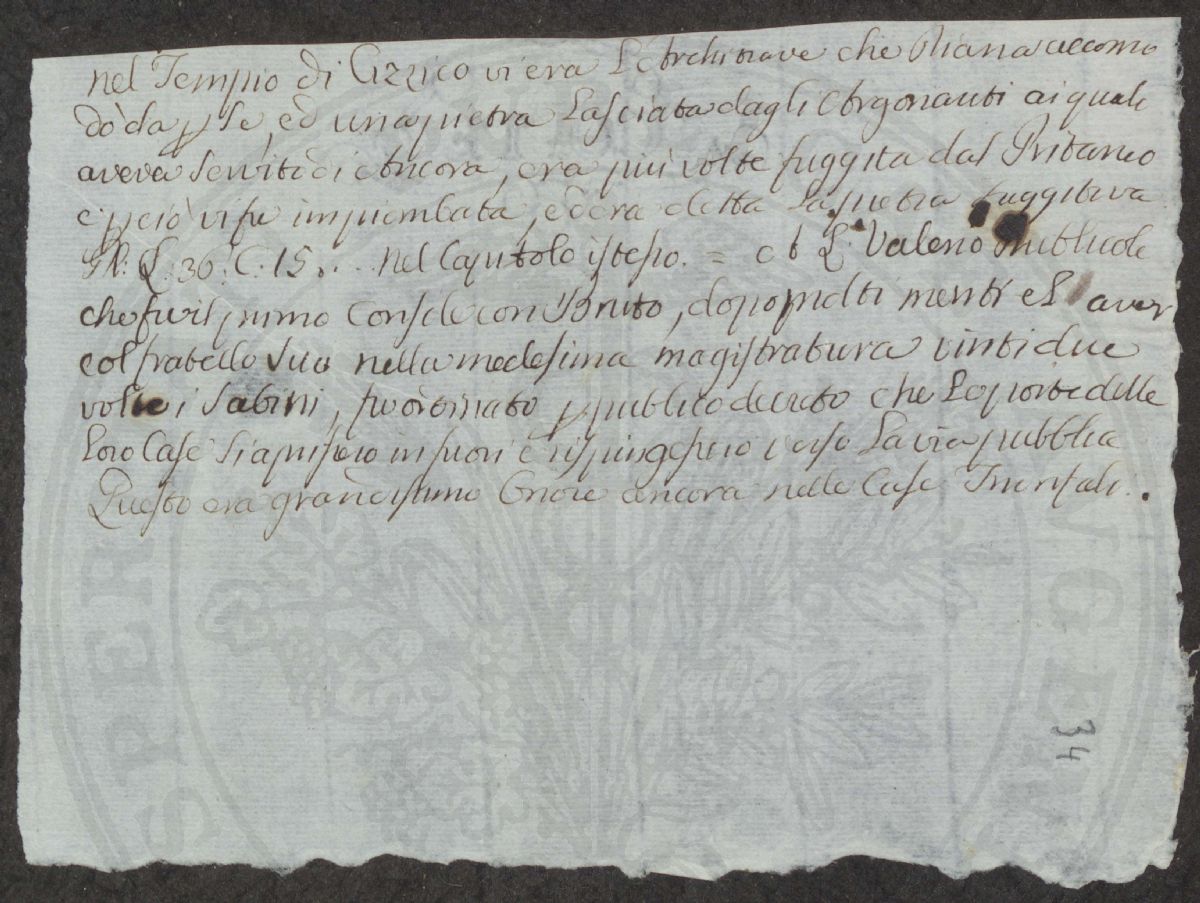 nel Tempio di Cizzico vi era L'Architrave che Diana accomo
dò da p se, ed una pietra Lasciata dagli Argonauti ai quali
aveva servito di Ancora, era più volte fuggita dal Pritaneo
e p ciò vi fu impiombata, ed era detta La pietra fuggitiva
Pl: L. 36. C. 15... nel Capitolo istesso. = A L. Valerio Publicole
che fu il primo Console con Bruto, dopo molti meriti e L' aver
col fratello suo nella medesima magistratura vinti due
volte i Sabini, fu ordinato p publico decreto che Le porte delle
Loro Case si aprissero in fuori e si spingessero verso La via publica
Questo era grandissimo Onore ancora nelle Case Trionfali.
34
SPER